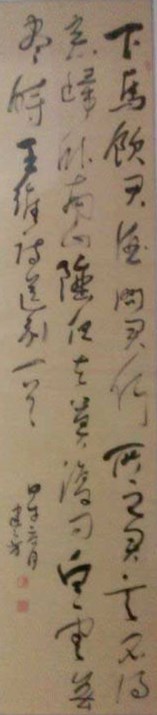 下馬飲君酒問君何所之君言不得
意歸卧南山陲但去莫復問白雲無
盡時王維詩送別一首
甲午六月